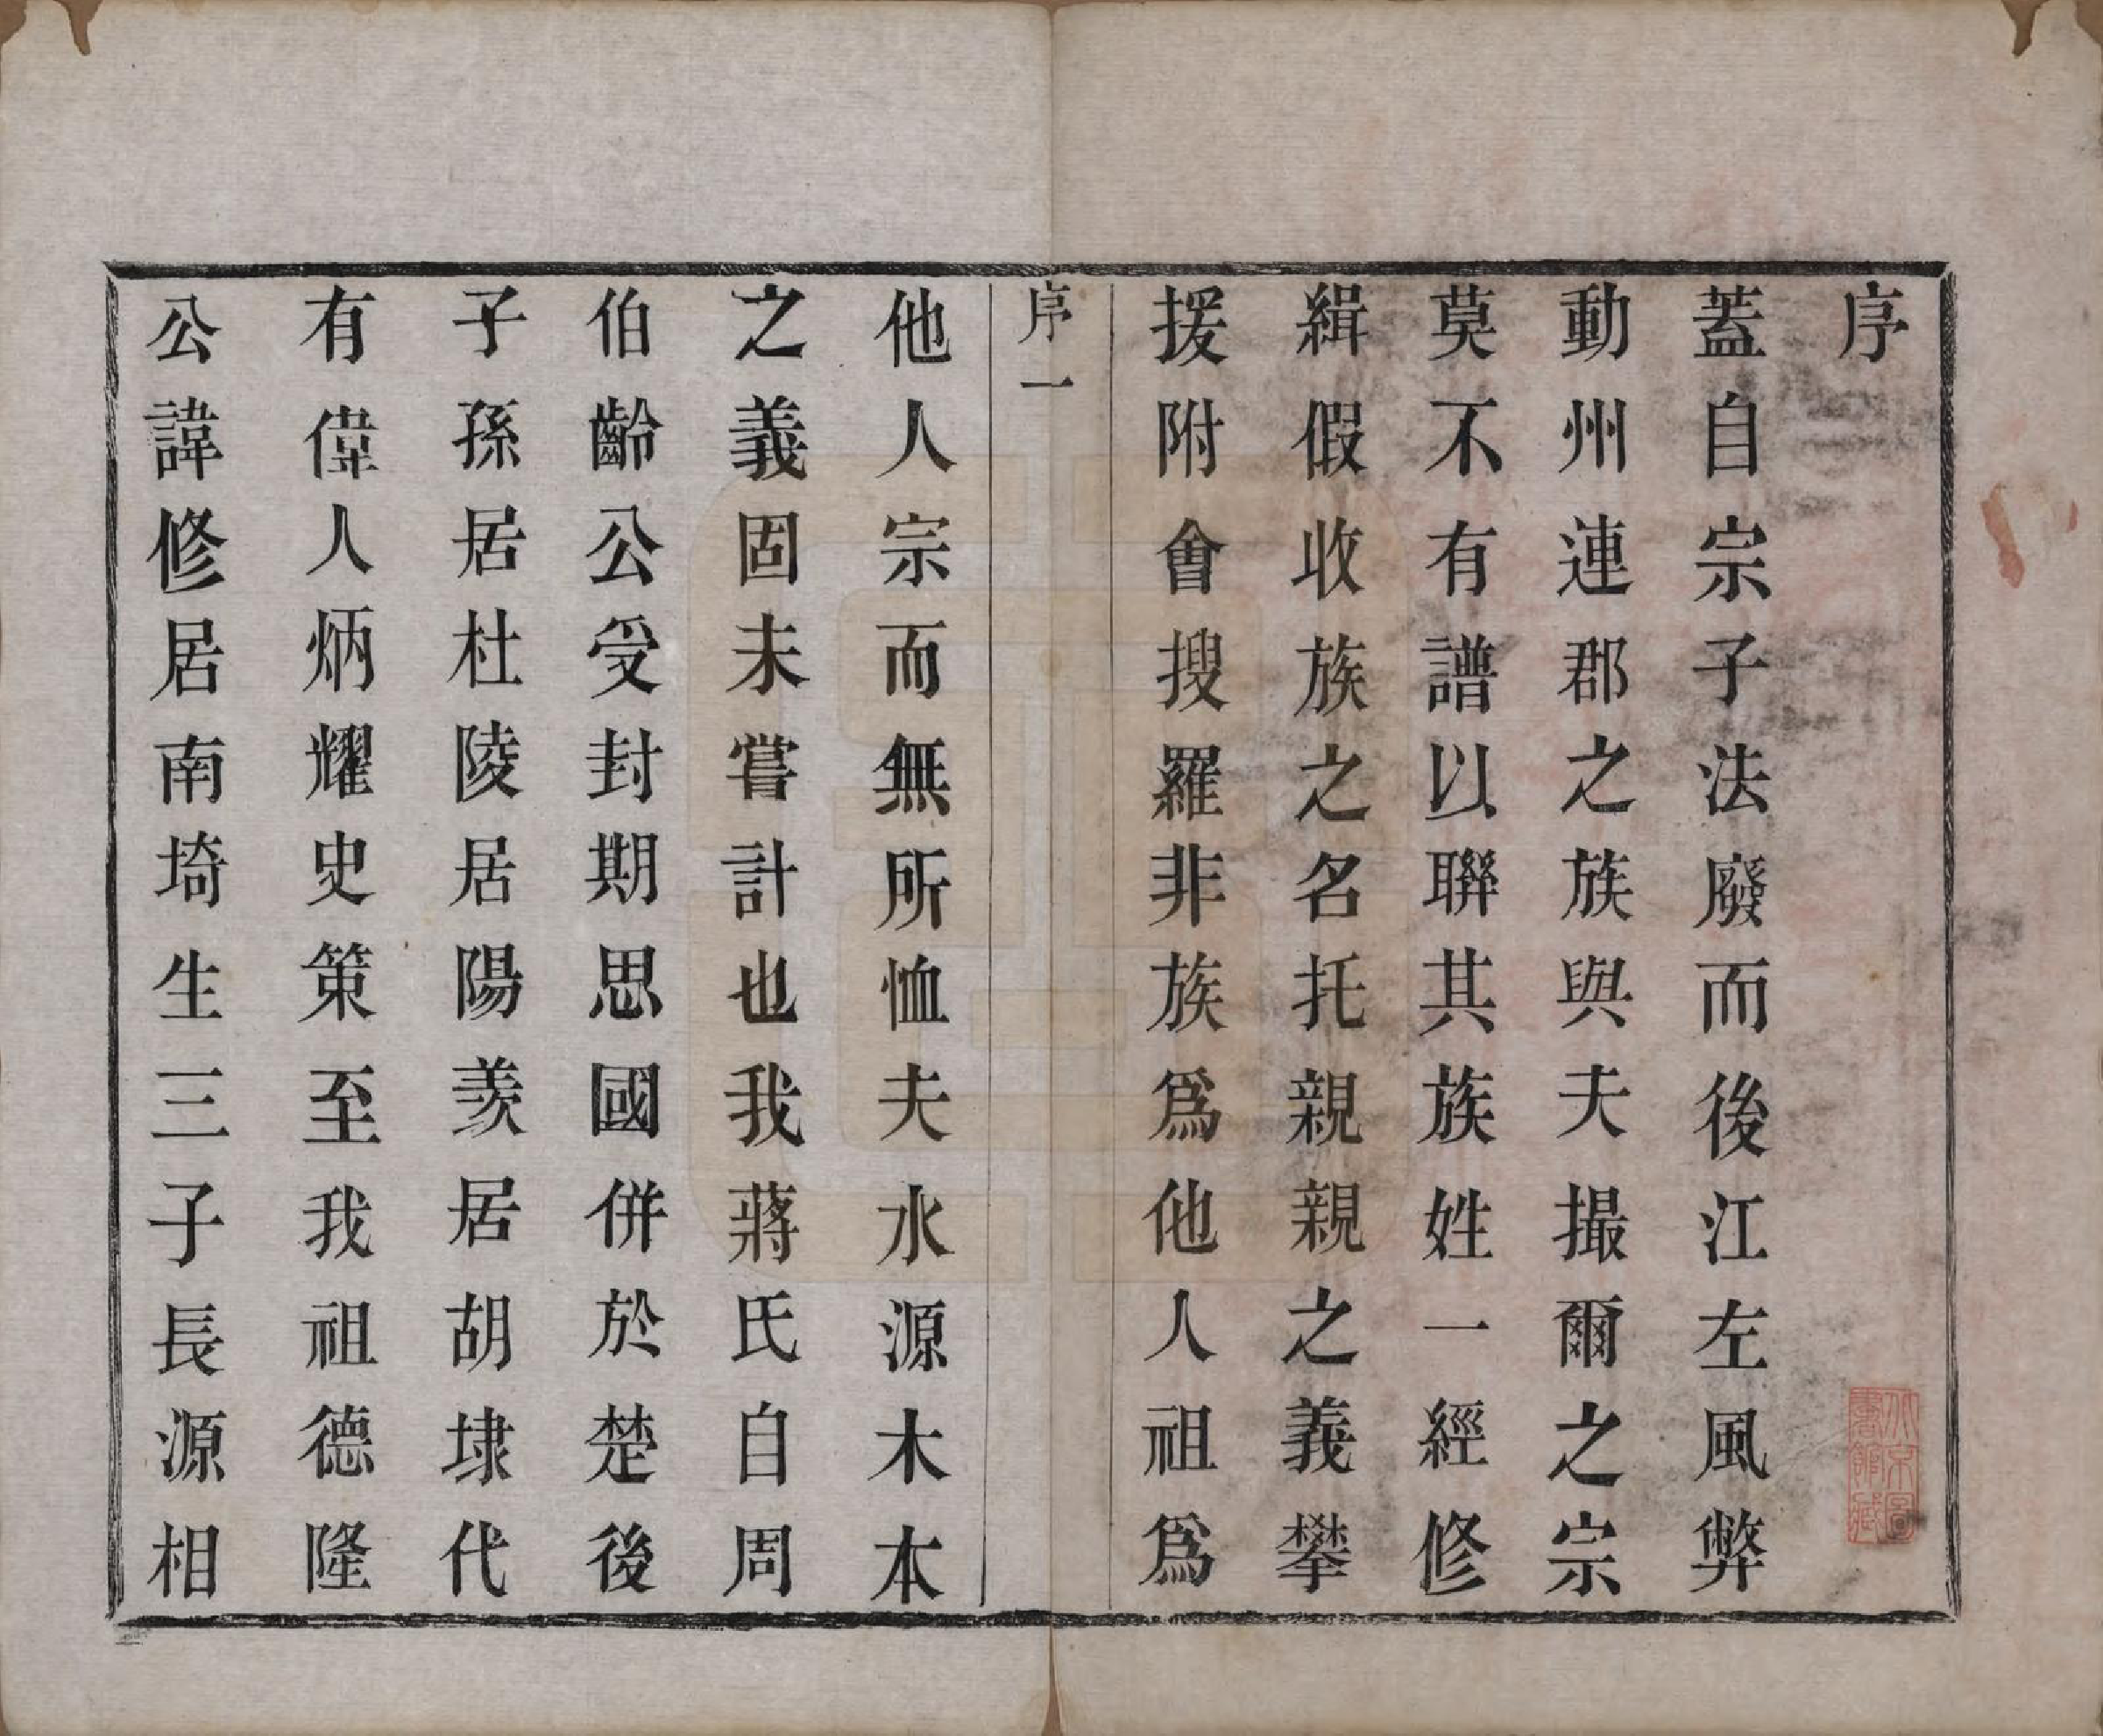 序
蓋自宗子法廢而後江左風弊
動州連郡之族與夫撮爾之宗
莫不有譜以聯其族姓一經修
緝假收族之名托親親之義攀
援附會搜羅非族爲他人祖爲
序一
他人宗而無所恤夫水源木本
之義固未嘗計也我蔣氏自周
伯齡公受封期思國併於楚後
子孫居杜陵居陽羨居胡埭代
有偉人炳耀史策至我祖德隆
公諱修居南埼生三子長源相
北京圖
書館藏